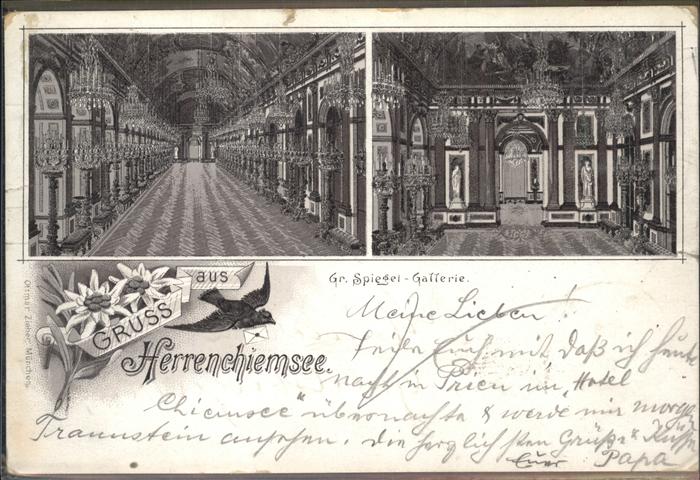 Gr. Spiegel-Gallerie.
GRUSS aus
Herrenchiemsee.
Ottmar Zieher, München.
Meine Lieben!
Teile Euch mit, daß ich heute
nacht in Prien im „Hotel
Chiemsee" übernachte & werde mir morgen
Traunstein ansehen. Die herzlichsten Grüße & Küsse
Euer Papa